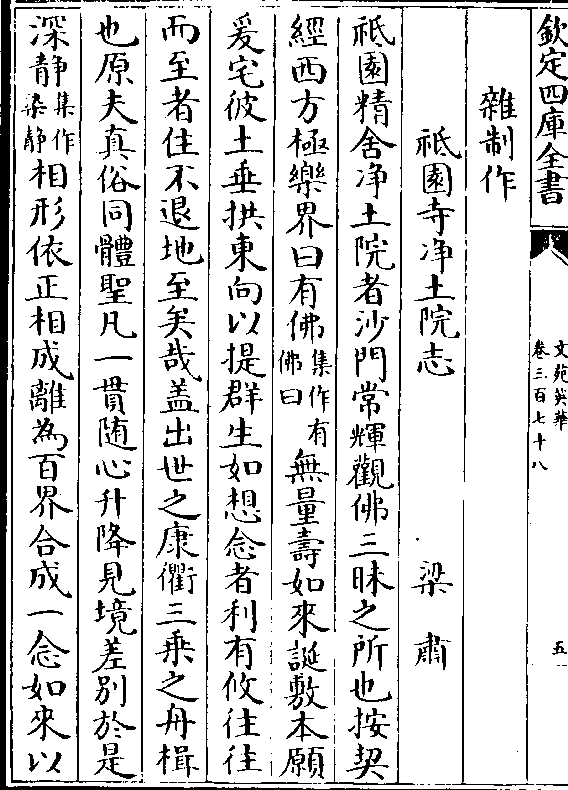 欽定四庫全書
文苑英華
卷三百七十八
五
雜制作
祇園寺净土院志
梁肅
祇園精舍净土院者沙門常輝觀佛三昧之所也按契
經西方極樂界曰有佛集作有佛曰無量壽如來誕敷本願
爰宅彼土垂拱東向以提群生如想念者利有攸往往
而至者住不退地至矣哉盖出世之康衢三乘之舟楫
也原夫真俗同體聖凡一貫随心升降見境差别於是
深靜集作染静相形依正相成離為百界合成一念如來以